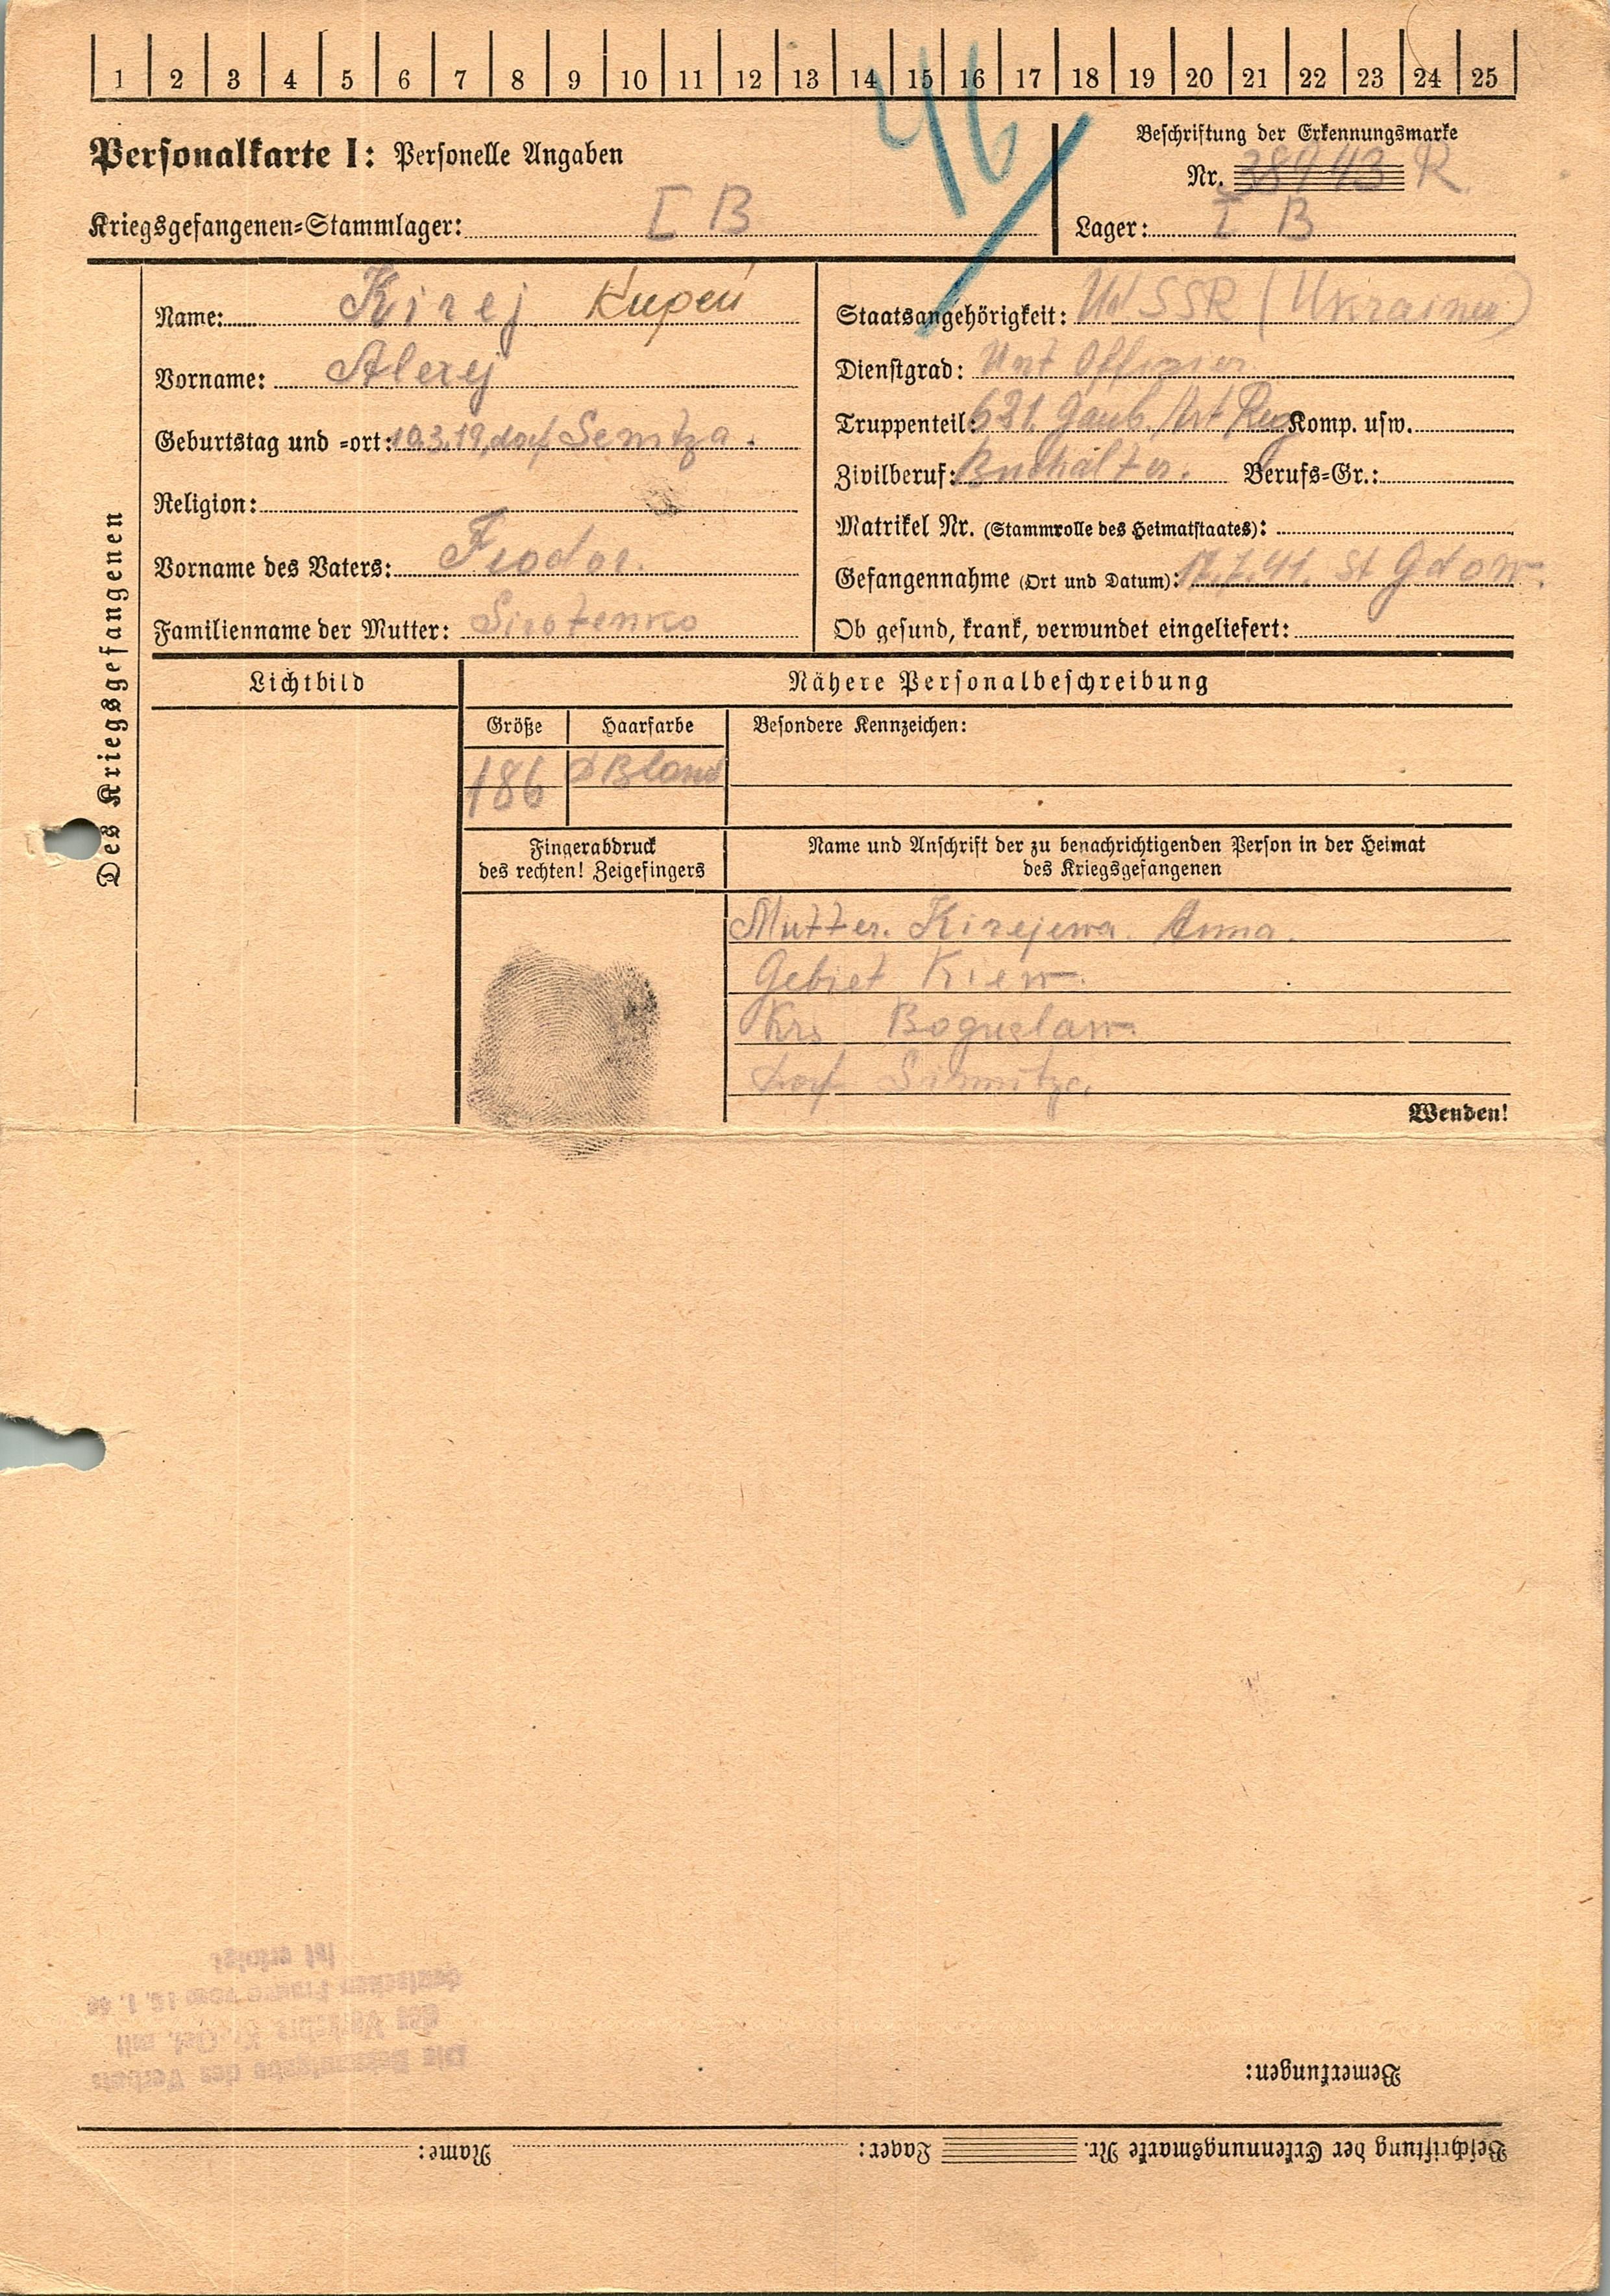 1 2 3 4 5 6 7 8 9 10 11 12 13 14 15 16 17 18 19 20 21 22 23 24 25
46
Personalkarte I: Personelle Angaben
Beschriftung der Erkennungsmarke
Nr. 38943 R.
Kriegsgefangenen-Stammlager: I B
Lager: I B
Des Kriegsgefangenen
Name: Kirej Кирей
Vorname: Alexej
Geburtstag und -ort: 10.3.19, dorf Semitza.
Religion:
Vorname des Vaters: Feodor.
Familienname der Mutter: Sirotenko
Staatsangehörigkeit: UdSSR (Ukrainer)
Dienstgrad: Unt Offizier
Truppenteil: 621. Gaub. Art Reg Komp. usw.
Zivilberuf: Buchalter. Berufs-Gr.:
Matrikel Nr. (Stammrolle des Heimatstaates):
Gefangennahme (Ort und Datum): 17.7.41. St Gdow.
Ob gesund, krank, verwundet eingeliefert:
Lichtbild
Nähere Personalbeschreibung
Größe Haarfarbe Besondere Kennzeichen:
186 D Blond
Fingerabdruck
des rechten! Zeigefingers
Name und Anschrift der zu benachrichtigenden Person in der Heimat
des Kriegsgefangenen
Mutter. Kirejewa. Anna.
Gebiet Kiew.
Krs Boguslaw.
dorf Simnitza.
Wenden!
Die Bekanntgabe des Verbots
des Verkehrs Kr. Gef. mit
deutschen Frauen vom 16. 1. 40
ist erfolgt
Bemerkungen:
Beschriftung der Erkennungsmarke Nr. Lager: Name: